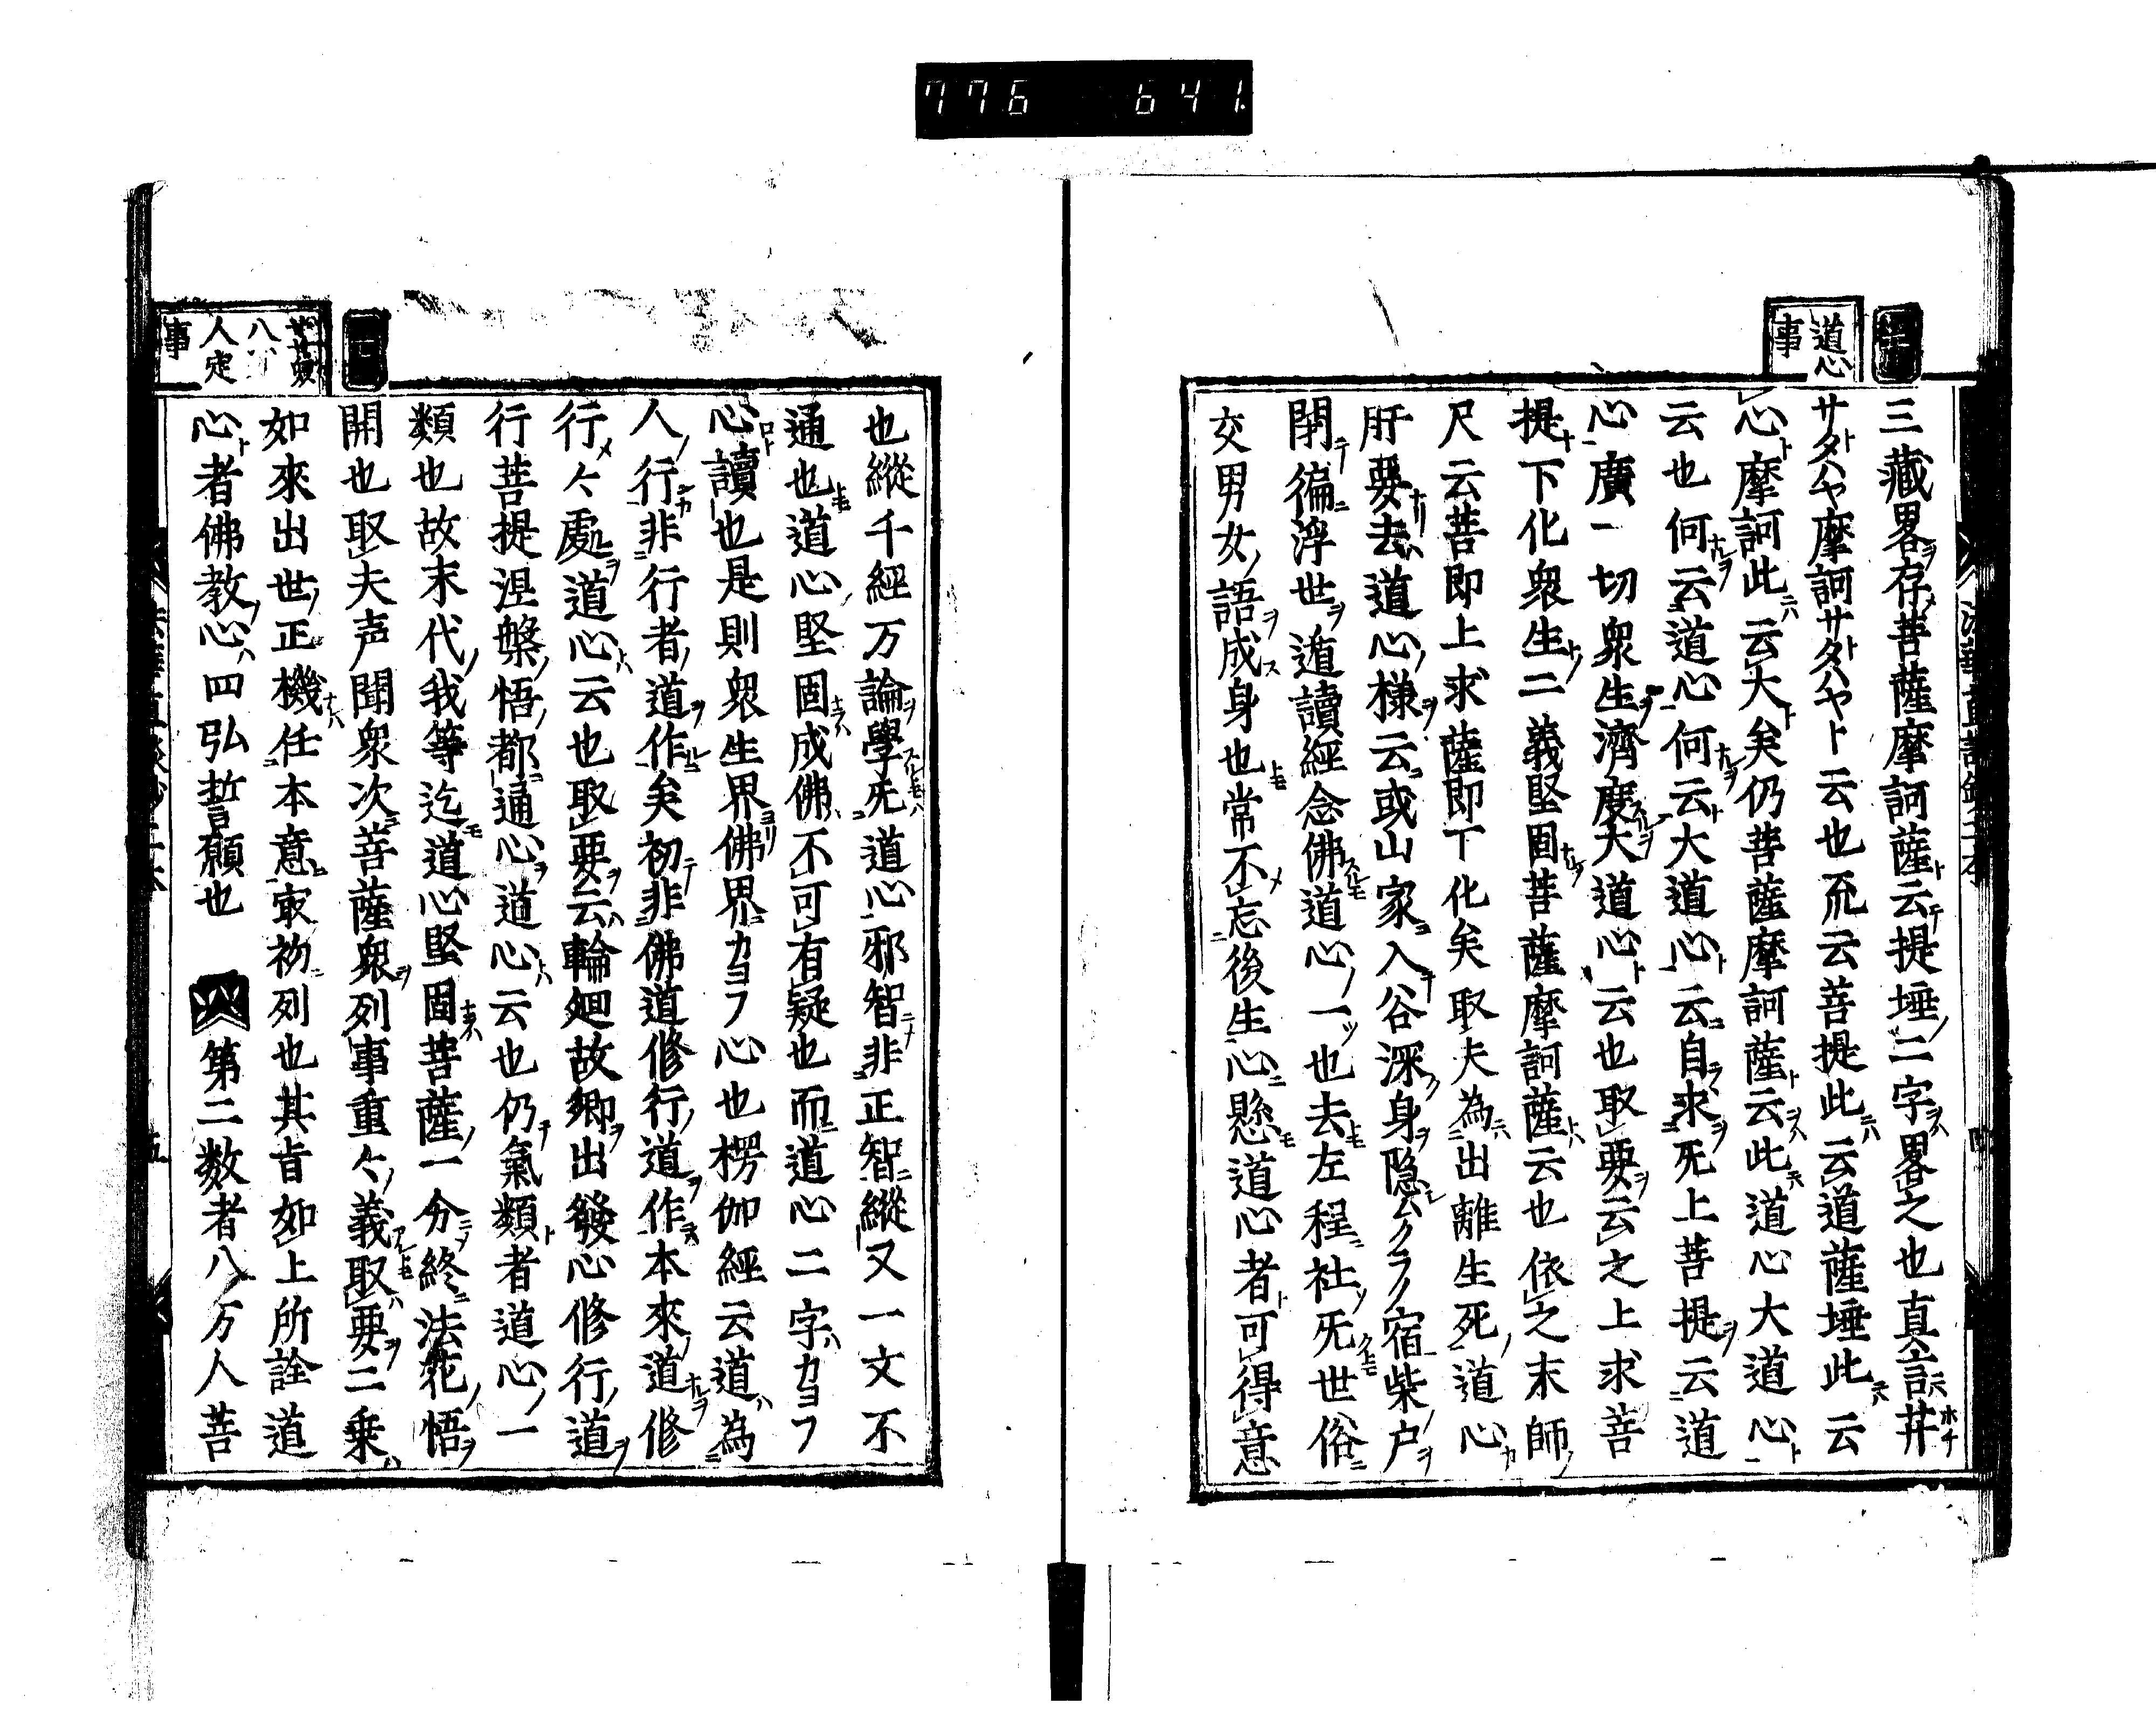 776 641
道心
事
三藏畧存菩薩摩訶薩云提埵二字畧之也真言井
サタハヤ摩訶サタハヤト云也兊云菩提此云道薩埵此云
心摩訶此云大矣仍菩薩摩訶薩云此道心大道心
云也何云道心何云大道心云自求旡上菩提云道
心廣一切衆生濟度大道心云也取要云之上求菩
提下化衆生二義堅固菩薩摩訶薩云也依之末師
尺云菩即上求薩即下化矣取夫為出離生死道心
肝要去道心様云或山家入谷深身隠云クラノ宿柴户
閉徧浮世遁讀經念佛道心一也去左程社旡世俗
交男女語成身也常不忘後生心懸道心者可得意
也縱千經万論學旡道心邪智非正智縱又一文不
通也道心堅固成佛不可有疑也而道心二字カヨフ
心讀也是則衆生界佛界カヨフ心也楞伽經云道為
人行非行者道作矣初非佛道修行道作本來道修
行々處道心云也取要云輪廻故郷出發心修行道
行菩提涅槃悟都通心道心云也仍氣類者道心一
類也故末代我等迄道心堅固菩薩一分終法花悟
開也取夫声聞衆次菩薩衆列事重々義取要二乗
如來出世正機任本意取初列也其旨如上所詮道
心者佛教心四弘誓願也 第二数者八万人菩
八
人定
事